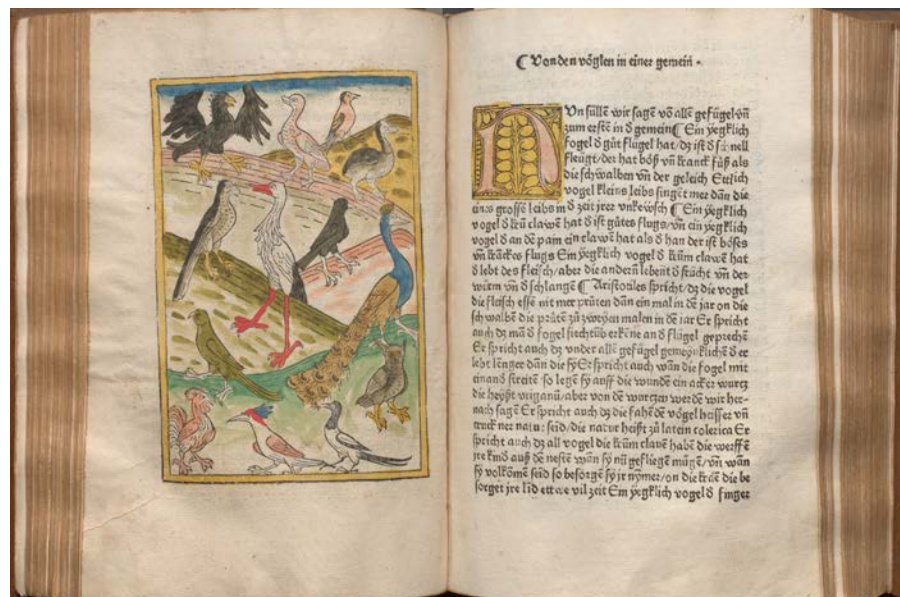 ⸿ Von den vöglen in einer gemein ·
NVn süllē wir sagē vō allē gefügel vn̄
zum erstē in d gemein ⸿ Ein yegklich
fogel d gůt flügel hat/dz ist d schnell
fleügt/der hat böß vn̄ kranck fůß als
die schwalben vn̄ der geleich Ettlich
vogel kleins leibs singēt mer dan̄ die
eins grossē leibs in d zeit jrer vnkewsch ⸿ Ein yegklich
vogel d krū clawē hat d ist gůtes flugs/vn̄ ein yegklich
vogel d an dē pam ein clawē hat als d han der ist böses
vn̄ krāckes flugs Ein yegklich vogel d krum clawē hat
d lebt des fleisch/aber die andern lebent d frücht vn̄ der
würm vn̄ d schlangē ⸿ Aristotiles spricht/dz die vogel
die fleisch essē nit mer prütē dan̄ ein mal in dē jar on die
schwalbē die prütē zů zweyen malen in dē iar Er spricht
auch dz mā d fogel siechtūb erkēne an d flügel geprechē
Er spricht auch dz vnder allē gefügel gemeynklichē d er
lebt lenger dan̄ die sy Er spricht auch wān die fogel mit
einand streitē so legē sy auff die wundē ein acker wurcz
die heyßt origanū/aber von dē wurczen werdē wir her-
nach sagē Er spricht auch dz die fahēdē vögel heisser vn̄
truckner natur seid/die natur heißt zů latein colerica Er
spricht auch dz all vogel die krūm clawē habē die werffē
jre kind auß dē nestē wān sy nū gefliegē mügē/vn̄ wān
sy volkōmē seid so besorgē sy jr nymer/on die kraē die be
sorget jre kīd ettwe vil zeit Ein yegklich vogel d finger